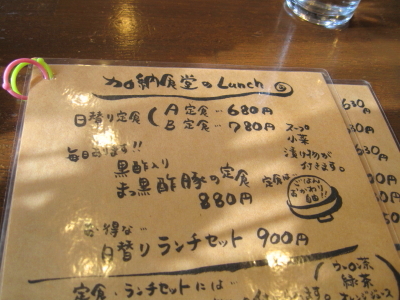 加納食堂のLunch
日替り定食
A定食…680円
B定食…780円
スープ
小菜
漬け物が
付きます。
毎日あります!!
黒酢入り
まっ黒酢豚の定食
880円
定食は
ごはん
おかわり
自由!
お得な…
日替りランチセット 900円
定食・ランチセットには…
ウーロン茶
緑茶
630円